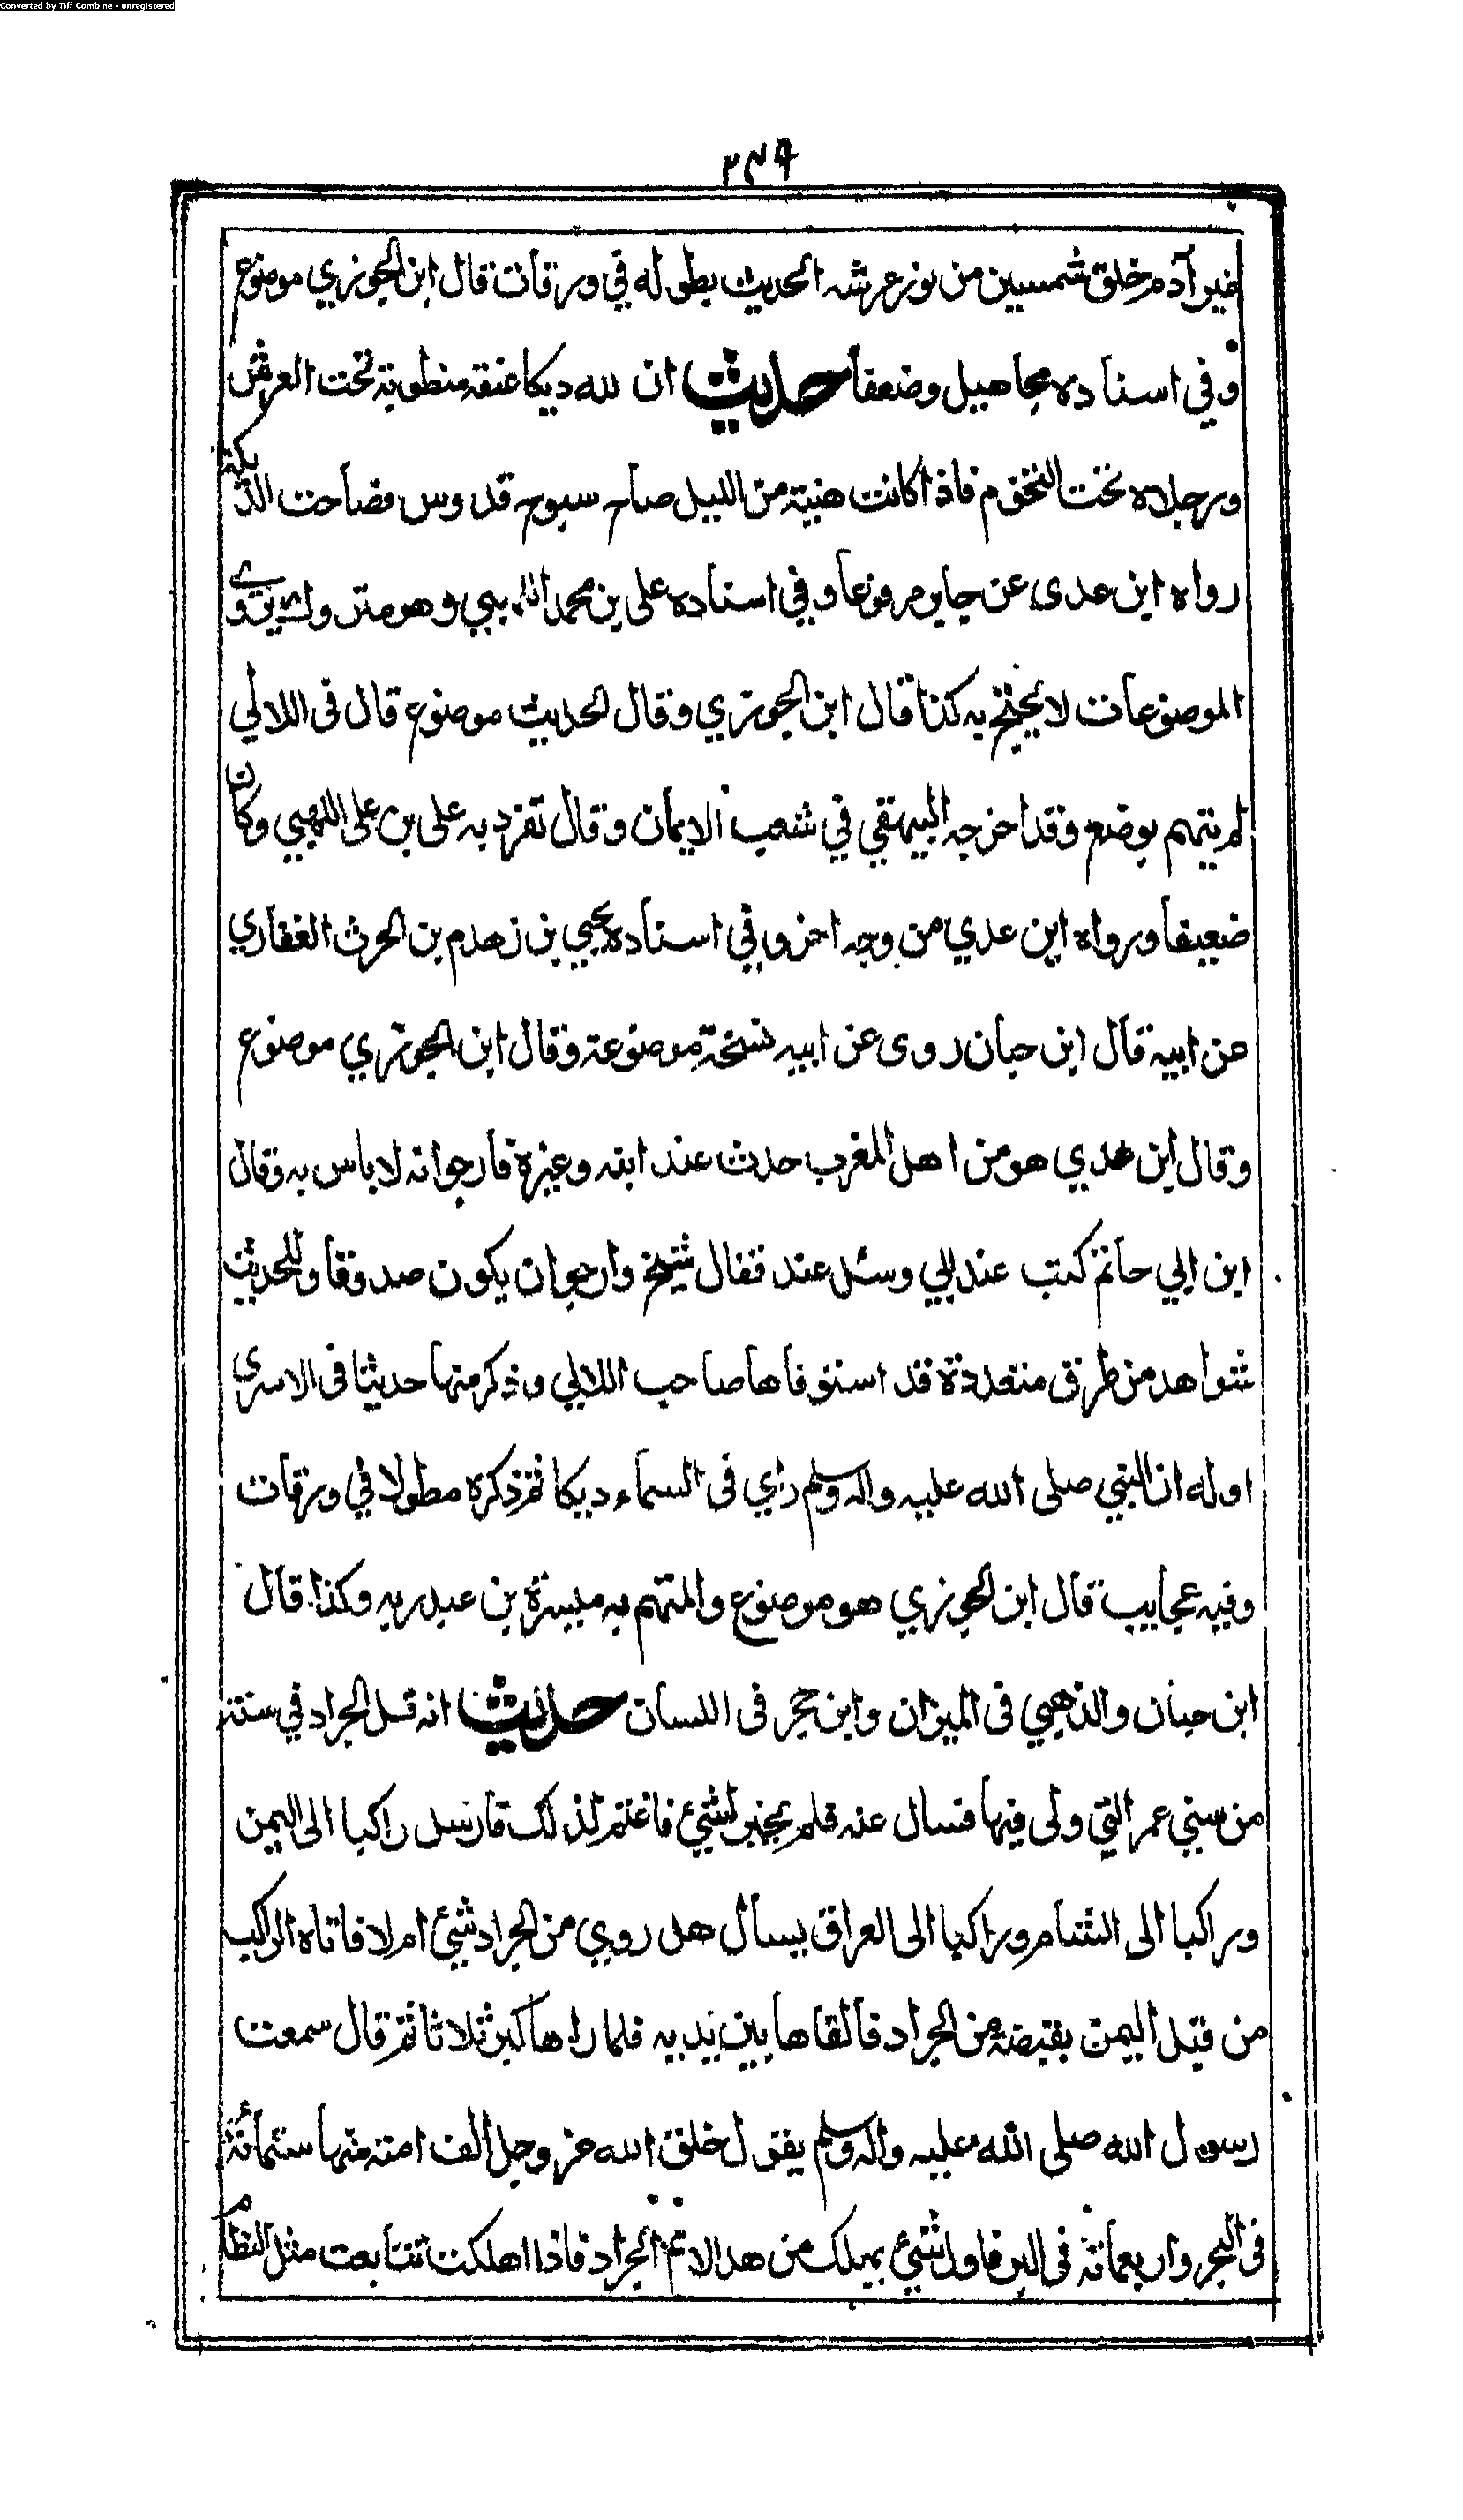 Converted by Tiff Combine - unregistered
٢٧٩
غير آدم خلق شمسين من نور عرشه الحديث بطوله في ورقات قال ابن الجوزي موضوع
وفي اسناده مجاهيل وضعفا حديث ان لله ديكا عنقه منطوية تحت العرش
ورجلاه تحت التخوم فاذا كانت هنية من الليل صاح سبوح قدوس فصاحت الديكة
رواه ابن عدى عن جابر مرفوعا وفي اسناده على بن محمد اللهبي وهو متروك يروي
الموضوعات لا يحتج به كذا قال ابن الجوزي وقال الحديث موضوع قال فى اللالي
لم يتهم بوضع وقد اخرجه البيهقي في شعب الايمان وقال تفرد به على بن على اللهبي وكان
ضعيفا ورواه ابن عدي من وجه اخر وفي اسناده يحيي بن زهدم بن الحرث الغفاري
عن ابيه قال ابن حبان روى عن ابيه نسخة موضوعة وقال ابن الجوزي موضوع
وقال ابن عدي هو من اهل المغرب حدث عند ابنه وغيره فارجوا انه لا باس به وقال
ابن ابي حاتم كتب عند ابي وسئل عنه فقال شيخ وارجوا ن يكون صدوقا وللحديث
شواهد من طرق متعددة قد استوفاها صاحب اللالي وذكر منها حديثا فى الاسرى
اوله ان النبي صلى الله عليه واله وسلم راي فى السماء ديكا ثم ذكره مطولا في ورقات
وفيه عجايب قال ابن الجوزي هو موضوع والمتهم به ميسرة بن عبد ربه وكذا قال
ابن حبان والذهبي فى الميزان وابن حجر فى اللسان حديث انه قل الجراد في سنة
من سني عمر التي ولى فيها فسال عنه فلم يخبر لشئ فاغتم لذلك فارسل راكبا الى اليمن
وراكبا الى الشام وراكبا الى العراق يسأل هل روي من الجراد شئ ام لا فاتاه الراكب
من قبل اليمن بقبضة من الجراد فالقاها بين يديه فلما راها كبر ثلاثا ثم قال سمعت
رسول الله صلى الله عليه واله وسلم يقول خلق الله عز وجل الف امة منها ستمائة
فى البحر واربعمائة فى البر فاول شئ يهلك من هذا الامم الجراد فاذا اهلكت تتابعت مثل النظام